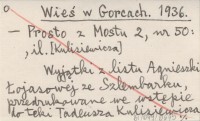 o
Wieś w Gorcach. 1936.
— Prosto z Mostu 2, nr 50:
, il. [Kulisiewicza]
Wyjątki z listu Agnieszki
Łojasowej ze Szlembarku,
przedrukowane we wstępie
do teki Tadeusza Kulisiewicza